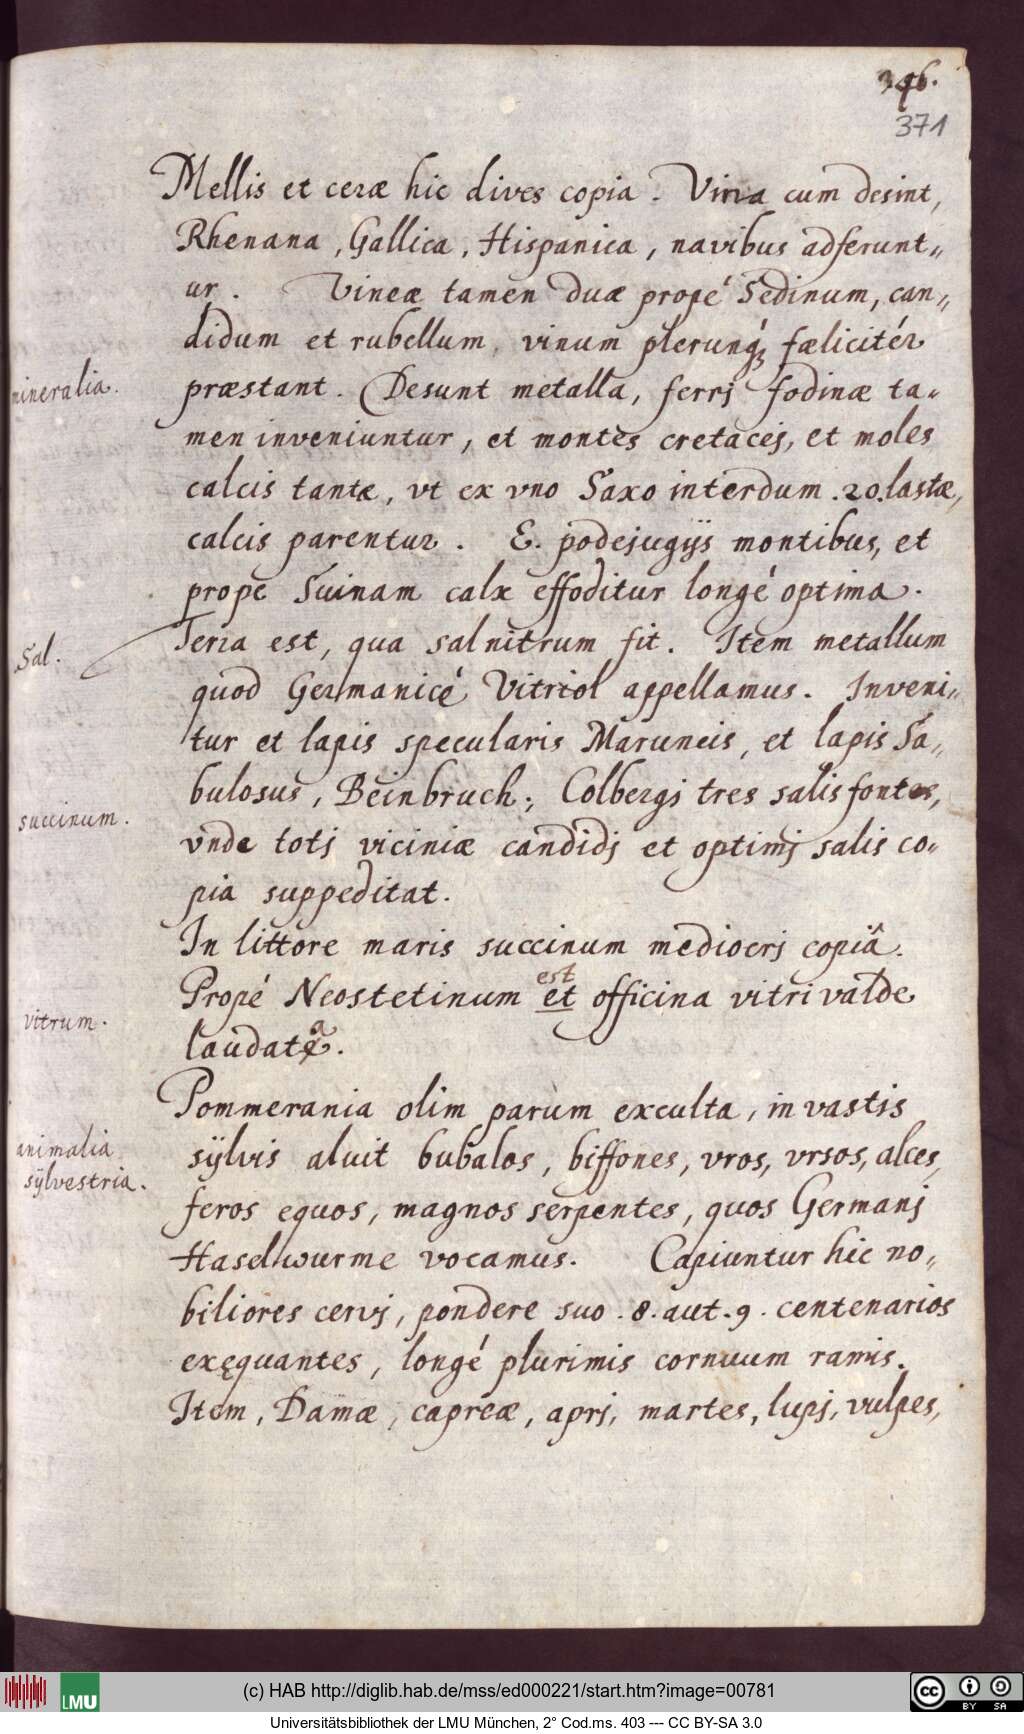 346.
371
Mellis et ceræ hic dives copia. Vina cum desint,
Rhenana, Gallica, Hispanica, navibus adferunt„
ur. Vineæ tamen duæ propé Sedinum, can„
didum et rubellum, vinum plerunq́ꝫ fæliciteŕ
mineralia.
præstant. Desunt metalla, ferrj fodinæ ta„
men inveniuntur, et montes cretacej, et moles
calcis tantæ, vt ex vno Saxo interdum .20. lastæ,
calcis parentur. E. podejugijs montibus, et
prope Suinam calx effoditur longé optima.
Sal.
Terra est, qua salnitrum fit. Item metallum
quod Germanicé Vitriol appellamus. Inveni„
tur et lapis specularis Maruneis, et lapis Sa„
bulosus, Beinbruch; Colbergj tres salis fontes,
succinum.
vnde totj viciniæ candidj et optimj salis co„
pia suppeditat.
In littore maris succinum mediocrj copiâ.
est
Propé Neostetinum et officina vitri valde
vitrum.
a
laudatę.
Pommerania olim parùm exculta, in vastis
animalia
sÿlvis aluit bubalos, biffones, vros, vrsos, alces,
sÿlvestria.
feros equos, magnos serpentes, quos Germanj
Haselwurme vocamus. Capiuntur hic no„
biliores cervj, pondere suo .8. aut .9. centenarios
exęquantes, longé plurimis cornuum ramis.
Item, Damæ, capreæ, aprj, martes, lupj, vulpes,
LMU
(c) HAB http://diglib.hab.de/mss/ed000221/start.htm?image=00781
cc BY SA
Universitätsbibliothek der LMU München, 2° Cod.ms. 403 --- CC BY-SA 3.0